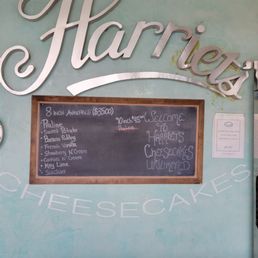 Harriet's
8 inch Available ($35.00)
Praline
Sweet Potato
Banana Pudding
French Vanilla
Strawberry N Cream
Cookies N Cream
Key Lime
10 inch
Praline
Welcome
to
Harriet's
Cheesecakes
Unlimited
CHEESECAKES